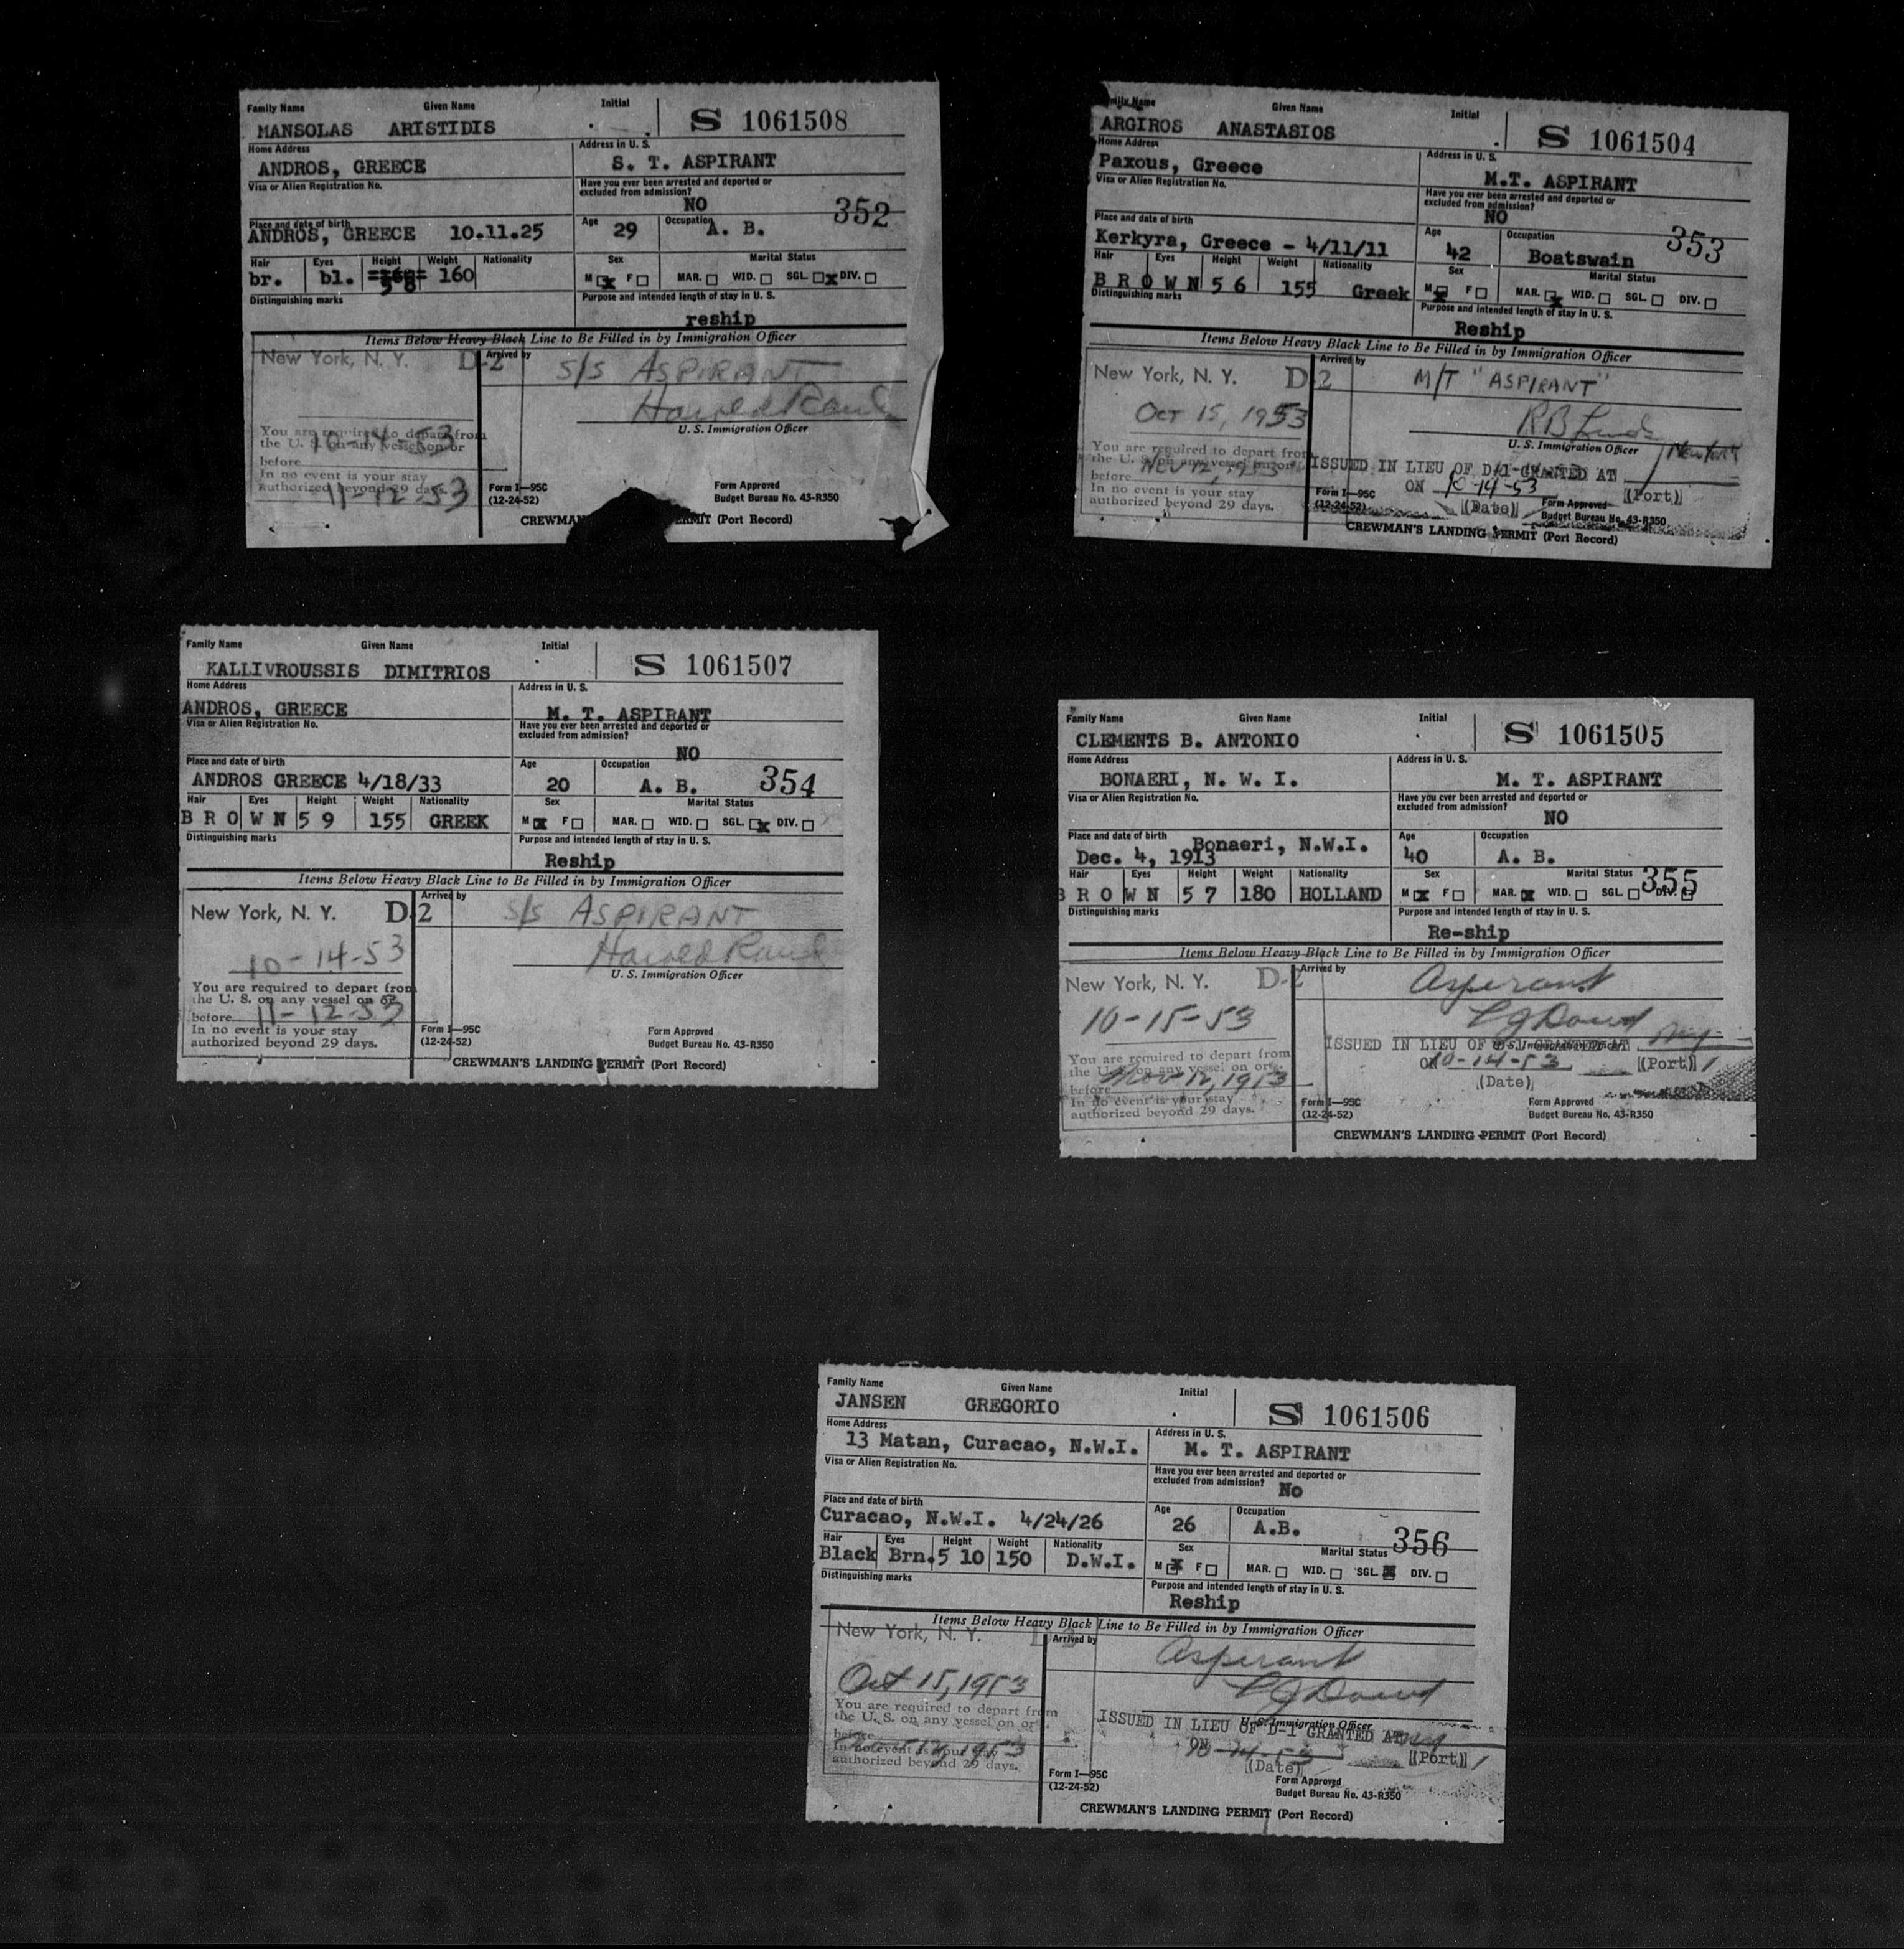 Family Name Given Name Initial
MANSOLAS ARISTIDIS S 1061508
Home Address Address in U. S.
ANDROS, GREECE S. T. ASPIRANT
Visa or Alien Registration No. Have you ever been arrested and deported or
excluded from admission?
NO
352
Place and date of birth Age Occupation
ANDROS, GREECE 10.11.25 29 A. B.
Hair Eyes Height Weight Nationality Sex Marital Status
br. bl. 5 8 160 M F MAR. WID. SGL. DIV.
Distinguishing marks Purpose and intended length of stay in U. S.
reship
Items Below Heavy Black Line to Be Filled in by Immigration Officer
New York, N. Y. D-2 Arrived by S/S ASPIRANT
10-14-53
U. S. Immigration Officer
You are required to depart from
the U. S. on any vessel on or
before 11-12-53
In no event is your stay
authorized beyond 29 days.
Form I—95C Form Approved
(12-24-52) Budget Bureau No. 43-R350
CREWMAN'S PERMIT (Port Record)
Family Name Given Name Initial
ARGIROS ANASTASIOS S 1061504
Home Address Address in U. S.
Paxous, Greece M.T. ASPIRANT
Visa or Alien Registration No. Have you ever been arrested and deported or
excluded from admission?
NO
353
Place and date of birth Age Occupation
Kerkyra, Greece - 4/11/11 42 Boatswain
Hair Eyes Height Weight Nationality Sex Marital Status
B R O W N 5 6 155 Greek M F MAR. WID. SGL. DIV.
Distinguishing marks Purpose and intended length of stay in U. S.
Reship
Items Below Heavy Black Line to Be Filled in by Immigration Officer
New York, N. Y. D-2 Arrived by M/T "ASPIRANT"
Oct 15, 1953
U. S. Immigration Officer
You are required to depart from
the U. S. on any vessel on or
before Nov 12, 1953
In no event is your stay
authorized beyond 29 days.
ISSUED IN LIEU OF D-1 GRANTED AT New York
ON 10-14-53 (Port)
(Date)
Form I—95C Form Approved
(12-24-52) Budget Bureau No. 43-R350
CREWMAN'S LANDING PERMIT (Port Record)
Family Name Given Name Initial
KALLIVROUSSIS DIMITRIOS S 1061507
Home Address Address in U. S.
ANDROS, GREECE M. T. ASPIRANT
Visa or Alien Registration No. Have you ever been arrested and deported or
excluded from admission?
NO
Place and date of birth Age Occupation
ANDROS GREECE 4/18/33 20 A. B. 354
Hair Eyes Height Weight Nationality Sex Marital Status
B R O W N 5 9 155 GREEK M F MAR. WID. SGL. DIV.
Distinguishing marks Purpose and intended length of stay in U. S.
Reship
Items Below Heavy Black Line to Be Filled in by Immigration Officer
New York, N. Y. D-2 Arrived by S/S ASPIRANT
10-14-53
U. S. Immigration Officer
You are required to depart from
the U. S. on any vessel on or
before 11-12-53
In no event is your stay
authorized beyond 29 days.
Form I—95C Form Approved
(12-24-52) Budget Bureau No. 43-R350
CREWMAN'S LANDING PERMIT (Port Record)
Family Name Given Name Initial
CLEMENTS B. ANTONIO S 1061505
Home Address Address in U. S.
BONAERI, N. W. I. M. T. ASPIRANT
Visa or Alien Registration No. Have you ever been arrested and deported or
excluded from admission?
NO
Place and date of birth Age Occupation
Bonaeri, N.W.I.
Dec. 4, 1913 40 A. B.
355
Hair Eyes Height Weight Nationality Sex Marital Status
B R O W N 5 7 180 HOLLAND M F MAR. WID. SGL. DIV.
Distinguishing marks Purpose and intended length of stay in U. S.
Re-ship
Items Below Heavy Black Line to Be Filled in by Immigration Officer
New York, N. Y. D-2 Arrived by Aspirant
10-15-53
U. S. Immigration Officer
ISSUED IN LIEU OF D-1 GRANTED AT
ON 10-14-53 (Port)
(Date)
You are required to depart from
the U. S. on any vessel on or
before Nov 12, 1953
In no event is your stay
authorized beyond 29 days.
Form I—95C Form Approved
(12-24-52) Budget Bureau No. 43-R350
CREWMAN'S LANDING PERMIT (Port Record)
Family Name Given Name Initial
JANSEN GREGORIO S 1061506
Home Address Address in U. S.
13 Matan, Curacao, N.W.I. M. T. ASPIRANT
Visa or Alien Registration No. Have you ever been arrested and deported or
excluded from admission? No
Place and date of birth Age Occupation
Curacao, N.W.I. 4/24/26 26 A.B. 356
Hair Eyes Height Weight Nationality Sex Marital Status
Black Brn. 5 10 150 D.W.I. M F MAR. WID. SGL. DIV.
Distinguishing marks Purpose and intended length of stay in U. S.
Reship
Items Below Heavy Black Line to Be Filled in by Immigration Officer
New York, N. Y. Arrived by Aspirant
Oct 15, 1953
U. S. Immigration Officer
ISSUED IN LIEU OF D-1 GRANTED AT
ON 10-14-53 (Port)
(Date)
You are required to depart from
the U. S. on any vessel on or
before
In no event is your stay
authorized beyond 29 days.
Form I—95C Form Approved
(12-24-52) Budget Bureau No. 43-R350
CREWMAN'S LANDING PERMIT (Port Record)